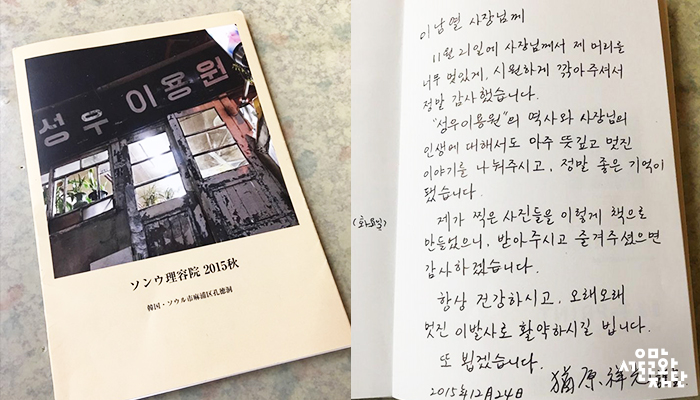 성우이용원
ソンウ理容院 2015秋
韓国・ソウル市麻浦区孔徳洞
이남열 사장님께
11월 21일에 사장님께서 제 머리를
너무 멋있게, 시원하게 깎아주셔서
정말 감사했습니다.
"성우이용원"의 역사와 사장님의
인생에 대해서도 아주 뜻깊고 멋진
이야기를 나눠주시고, 정말 좋은 기억이
됐습니다.
(화요일)
제가 찍은 사진들을 이렇게 책으로
만들었으니, 받아주시고 즐겨주셨으면
감사하겠습니다.
항상 건강하시고, 오래오래
멋진 이발사로 활약하시길 빕니다.
또 뵙겠습니다.
2015年12月24日
原祥